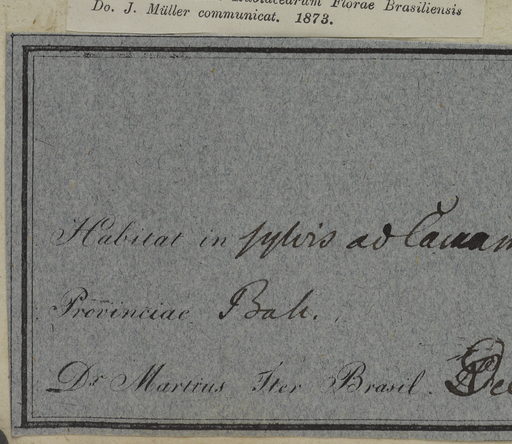 Rubiacearum Florae Brasiliensis
Do. J. Müller communicat. 1873.
Habitat in sylvis ad Camam
Provinciae Bah.
Dr Martius Iter Brasil. Dec